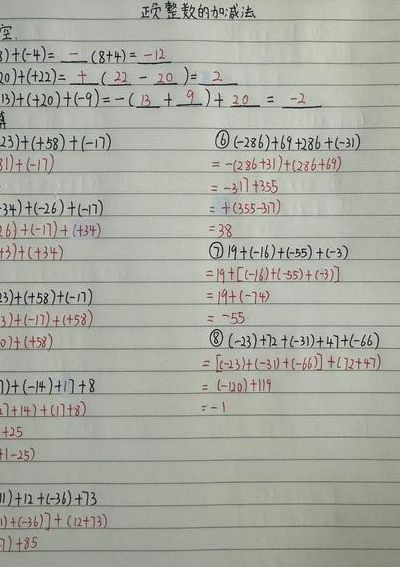 正负整数的加减法
空.
8)+(-4)= - (8+4)= -12
20)+(+22)= + ( 22 - 20 )= 2
13)+(+20)+(-9)=-( 13 + 9 )+ 20 = -2
算
23)+(+58)+(-17)
81)+(-17)
+34)+(-26)+(-17)
26)+(-17)+(+34)
+3)+(+34)
23)+(+58)+(-17)
3)+(-17)+(+58)
0)+(+58)
7)+(-14)+17+8
27+14)+(17+8)
+25
+1-25)
11)+12+(-36)+73
1)+(-36)]+(12+73)
7)+85
⑥(-286)+69+286+(-31)
=-(286+31)+(286+69)
=-317+355
=+(355-317)
=38
⑦19+(-16)+(-55)+(-3)
=19+[(-16)+(-55)+(-3)]
=19+(-74)
=-55
⑧(-23)+72+(-31)+47+(-66)
=[(-23)+(-31)+(-66)]+(72+47)
=(-120)+119
=-1